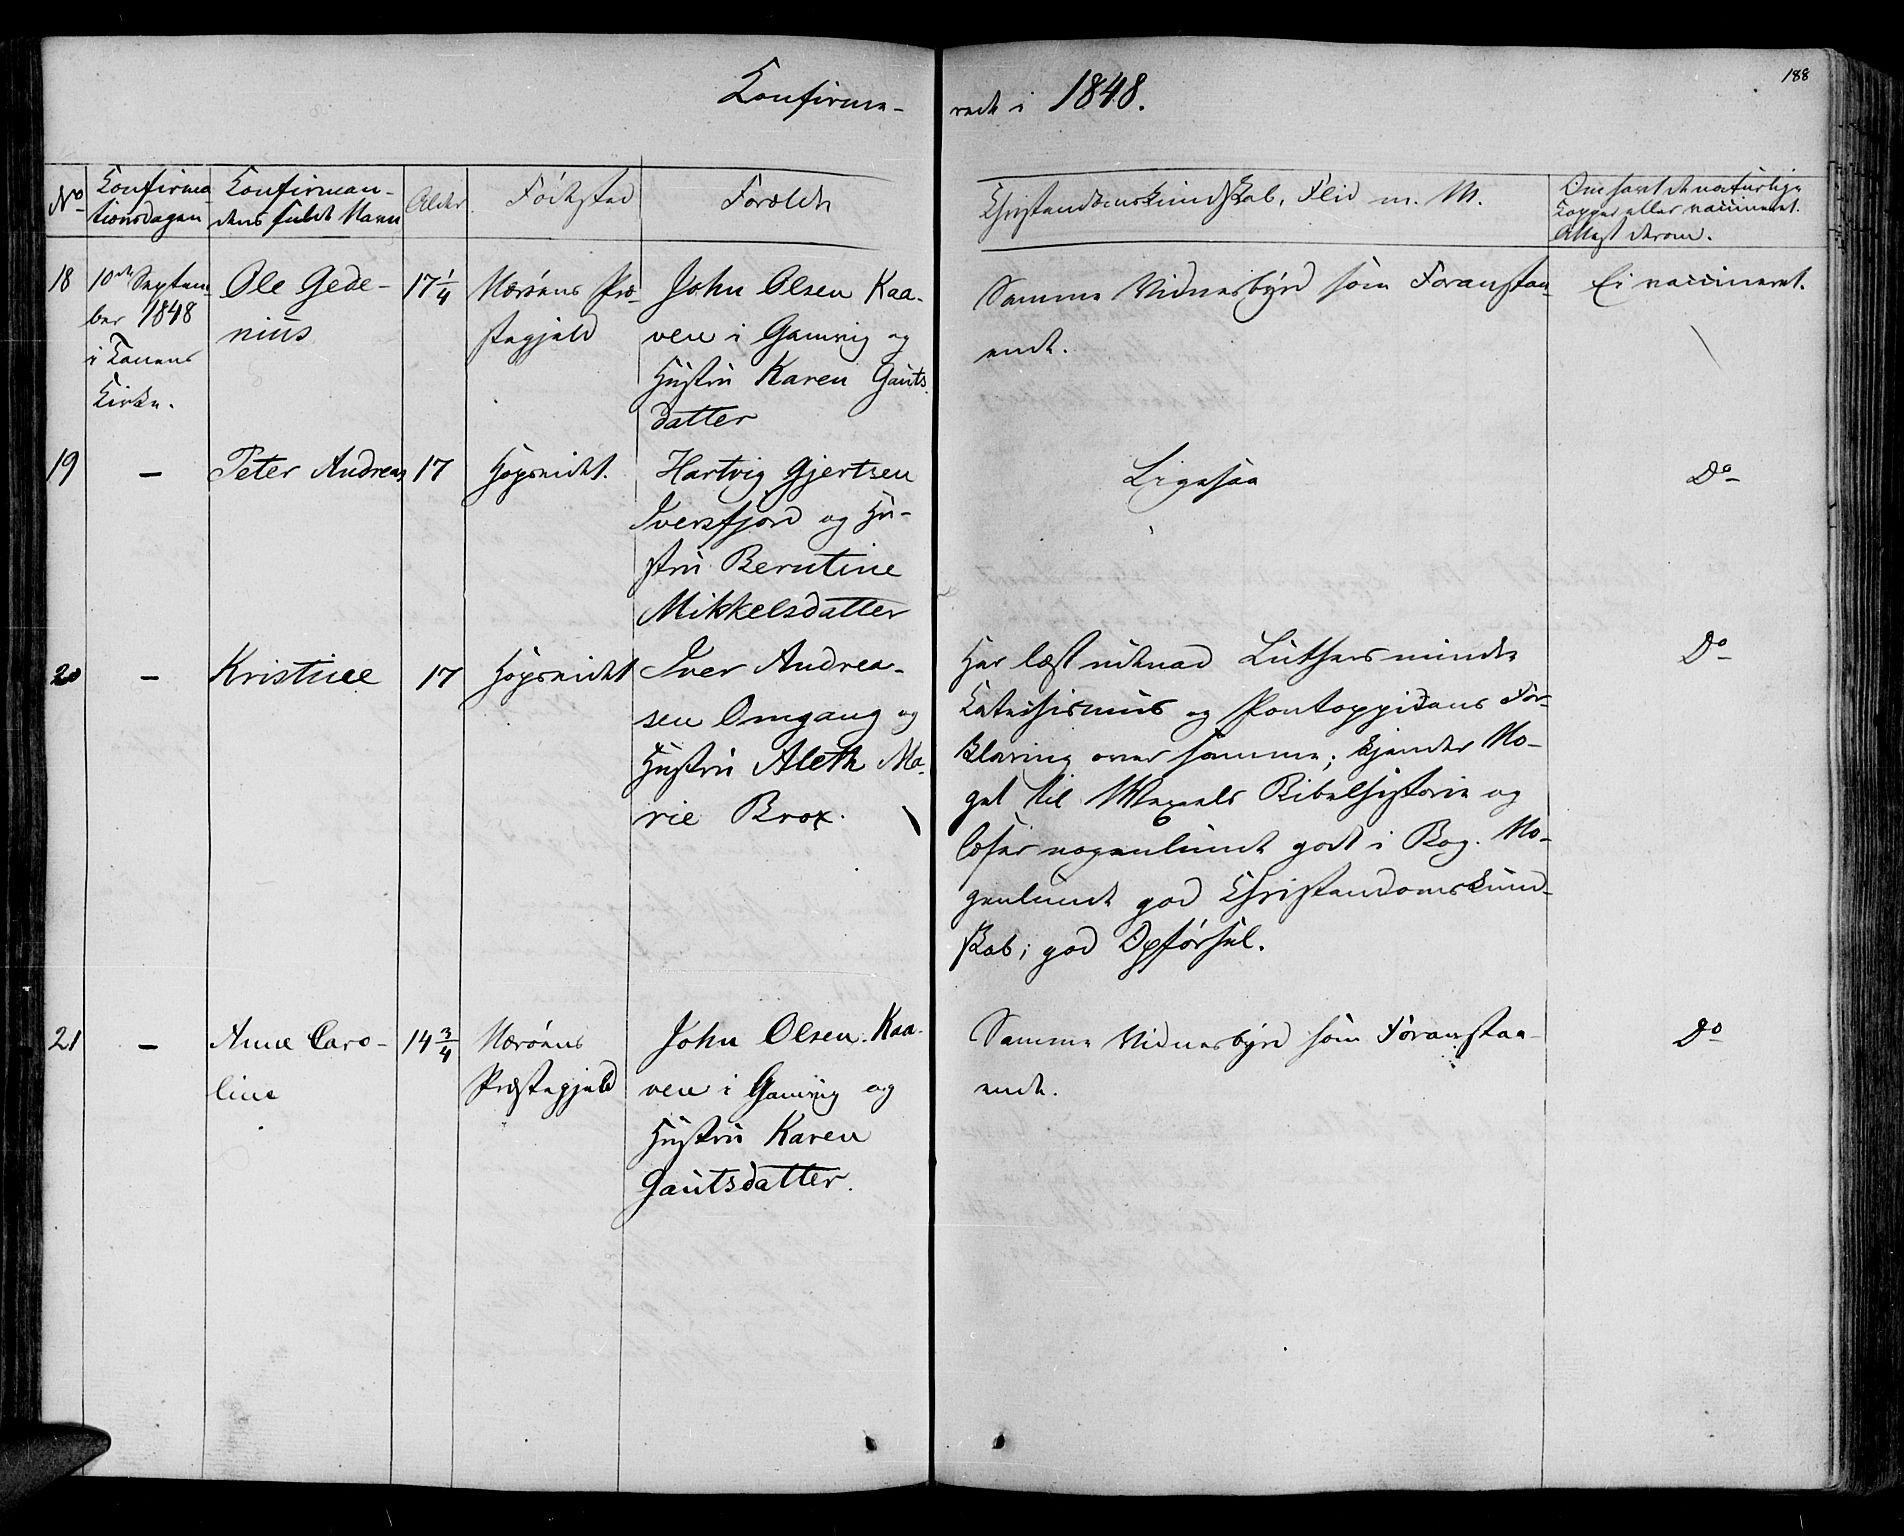 188
Confirme-
rede i 1848.
No
Confirma
tionsdagen
Confirman-
dens fulde Navn
Alder
Födested
Forældre
Christendomskundskab, Flid m. M.
Om havt de naturlige
Kopper eller vaccineret.
Attest derom.
18
10de Septem-
ber 1848
i Tanens
Kirke.
Ole Gede-
nius
17 1/4
Nærøens Præ-
stegjeld
John Olsen Kaa-
ven i Gamvig og
Hustru Karen Gauts-
datter
Samme Vidnesbyrd som Foranstaa-
ende.
Ei vaccineret.
19
-
Peter Andreas
17
Hopseidet.
Hartvig Gjertsen
Iversfjord og Hu-
stru Berntine
Mikkelsdatter
Ligesaa
Do
20
-
Kristine
17
Hopseidet
Iver Andrea-
sen Omgang og
Hustru Aleth Ma-
rie Brox.
Har læst udenad Luthers mindre
Katechismus og Pontoppidans For-
klaring over samme; kjender No-
get til Wexels Bibelhistorie og
læser nogenlunde godt i Bog. No-
genlunde god Christendomskund-
skab; god Opförsel.
Do
21
-
Anne Caro-
line
14 3/4
Nærøens
Præstegjeld
John Olsen Kaa-
ven i Gamvig og
Hustru Karen
Gautsdatter.
Samme Vidnesbyrd som Foranstaa-
ende.
Do